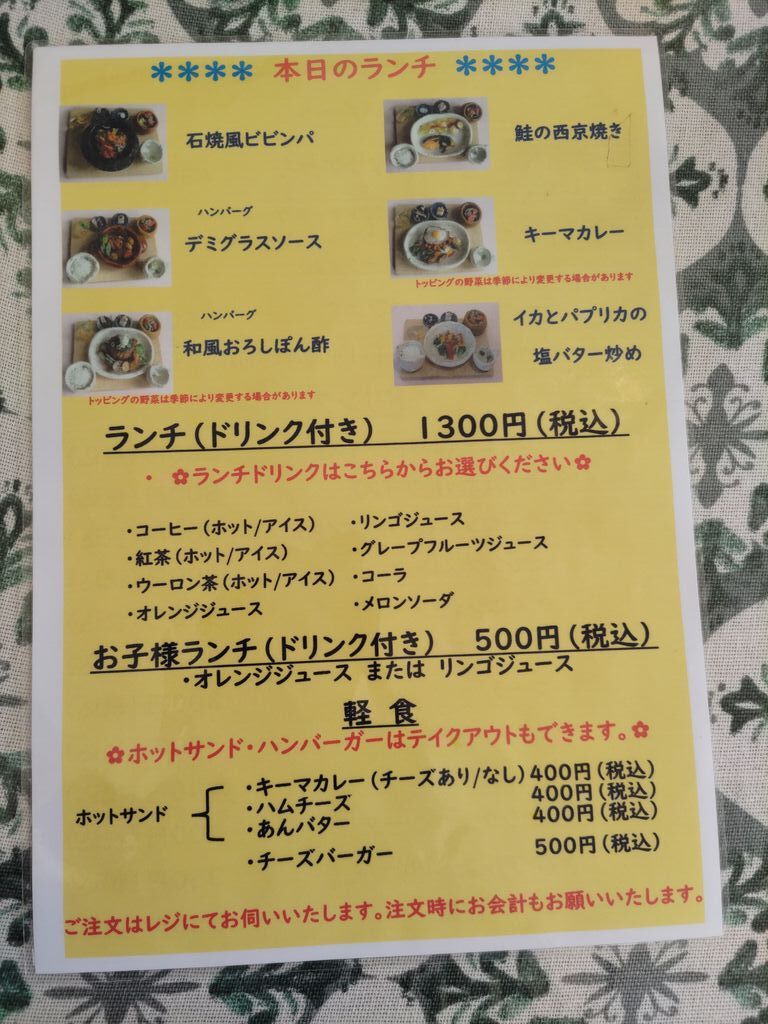 **** 本日のランチ ****
石焼風ビビンパ
鮭の西京焼き
ハンバーグ
デミグラスソース
キーマカレー
トッピングの野菜は季節により変更する場合があります
ハンバーグ
和風おろしぽん酢
トッピングの野菜は季節により変更する場合があります
イカとパプリカの
塩バター炒め
ランチ(ドリンク付き) 1300円(税込)
・ ✿ランチドリンクはこちらからお選びください✿
・コーヒー(ホット/アイス)
・紅茶(ホット/アイス)
・ウーロン茶(ホット/アイス)
・オレンジジュース
・リンゴジュース
・グレープフルーツジュース
・コーラ
・メロンソーダ
お子様ランチ(ドリンク付き) 500円(税込)
・オレンジジュース または リンゴジュース
軽 食
✿ホットサンド・ハンバーガーはテイクアウトもできます。✿
ホットサンド
・キーマカレー(チーズあり/なし) 400円(税込)
・ハムチーズ 400円(税込)
・あんバター 400円(税込)
・チーズバーガー 500円(税込)
ご注文はレジにてお伺いいたします。注文時にお会計もお願いいたします。